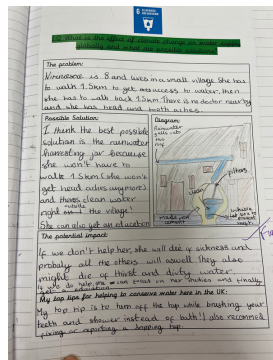 LO: What is the effect of climate change on water supply
globally and what are possible solutions?
The problem:
is 8 and lives in a small village. She has
to walk 1.5km to get access to water, then
she has to walk back 1.5km. There is no doctor near by
and she has head and tooth aches.
Possible Solution:
I think the best possible
solution is the rainwater
harvesting jar because
she won't have to
walk 1.5km (she won't
get head aches anymore)
and theres clean water
right outside the village!
She can also get an education
Diagram:
Rainwater
falls onto
the
roof
clean
filters
made from
cement
The potential impact:
If we don't help her, she will die of sickness and
probably all the others will aswell. They also
might die of thirst and dirty water.
If we do help, she can
My top tips for helping to conserve water here in the UK:
My top tip is to turn off the tap while brushing your
teeth and shower instead of bath! I also recommend
fixing or reporting a dripping tap.